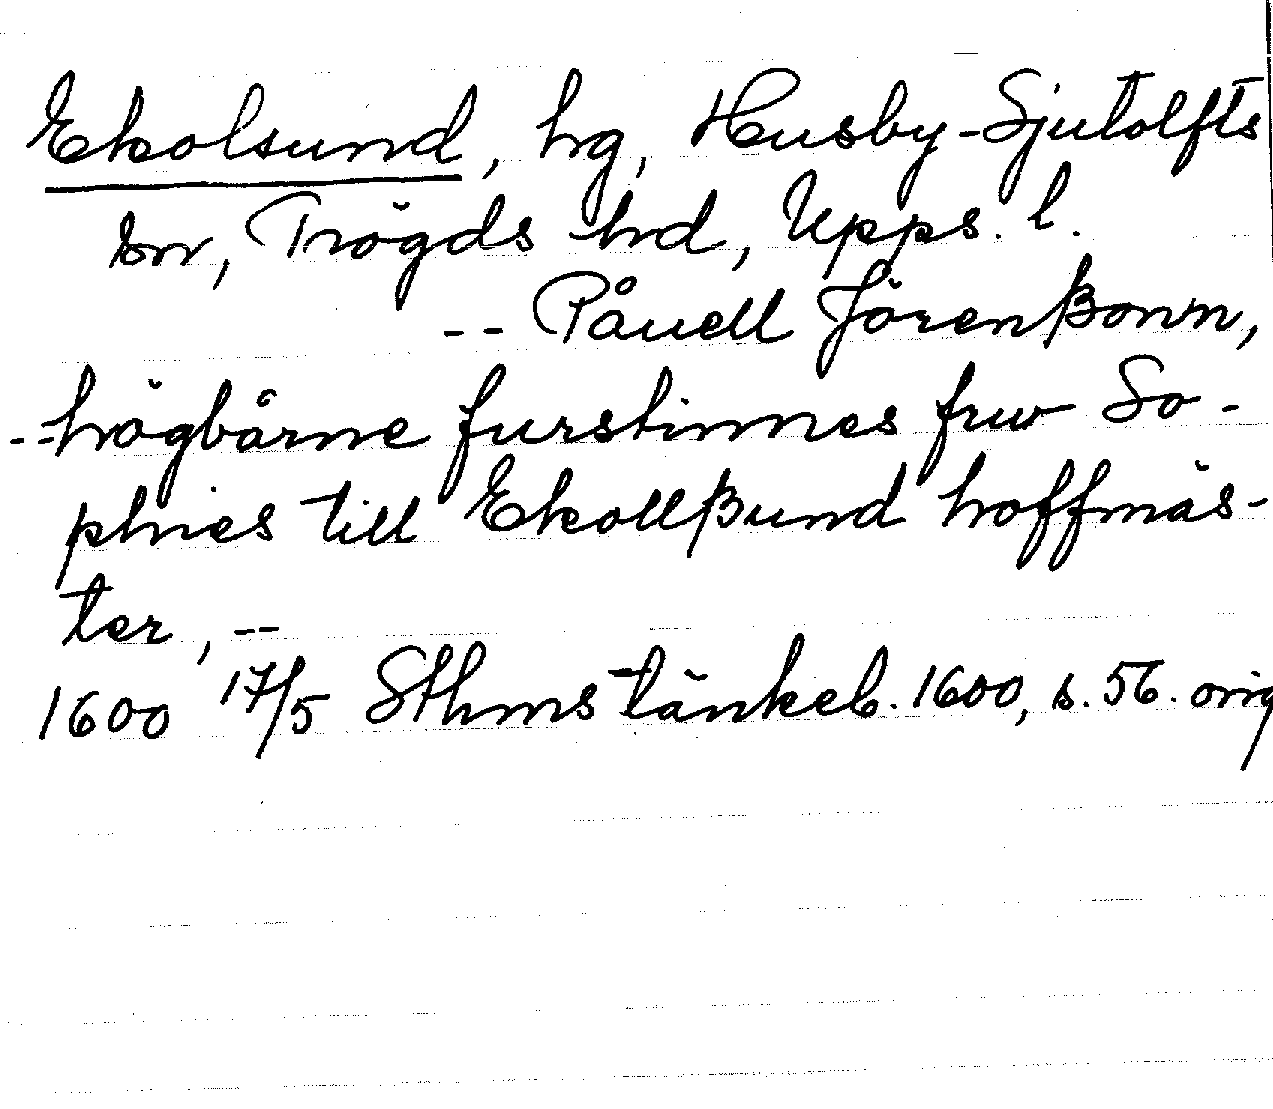 Ekolsund, hg, Husby-Sjutolfts
sn, Trögds hd, Upps. l.
-- Påuell Jörenßonn,
-- högbårne furstinnes fruv So-
phies till Ekollßund hoffmäs-
ter, --
1600 17/5 Sthms tänkeb. 1600, s. 56. orig